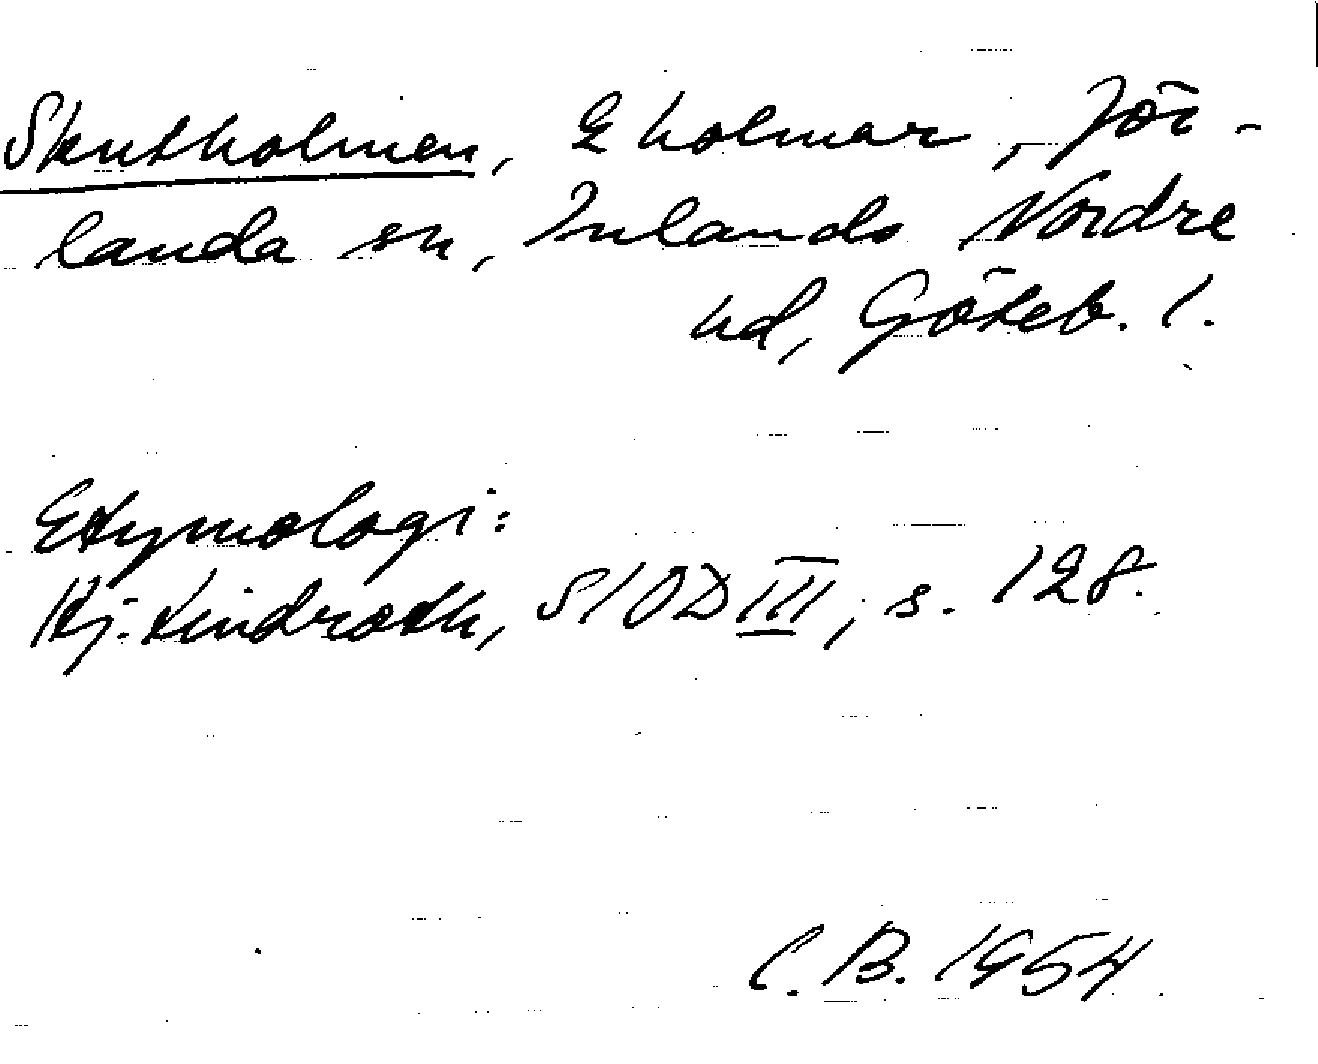 Skutholmen, 2 holmar, Jör-
landa sn, Inlands Nordre
hd, Göteb. l.
Etymologi:
Hj. Lindroth, SIOD III, s. 128.
C. B. 1954